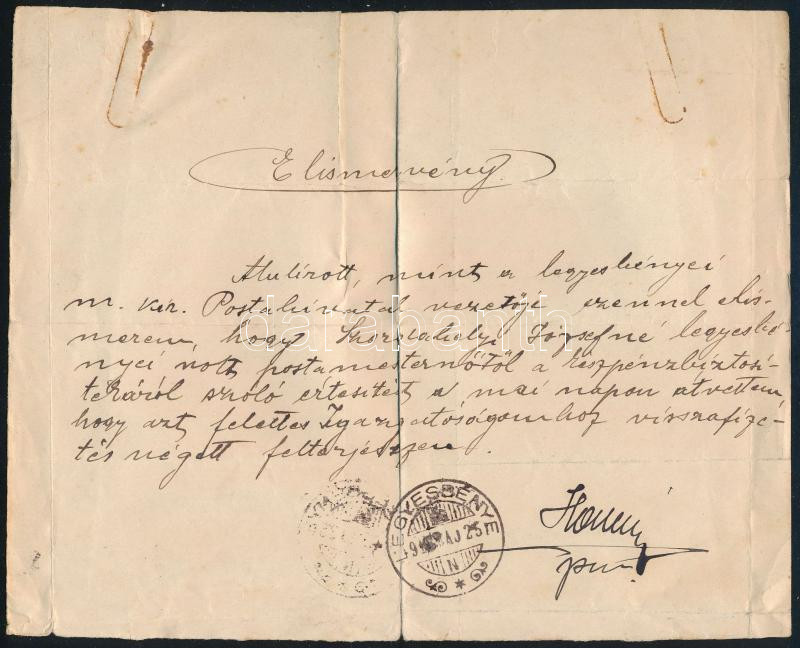 Elismervény.
Alulirott, mint a legyesbényei
m. kir. Postahivatal vezetője ezennel elis-
merem, hogy Szordahelyi Józsefné legyesbé-
nyei volt postamesternőtől a készpénzbiztosi-
tékáról szóló értesitést a mai napon átvettem,
hogy azt felettes Igazgatóságomhoz visszafize-
tés végett felterjesszem.
LEGYESBÉNYE
MÁJ 25
N
pm.
darabanth